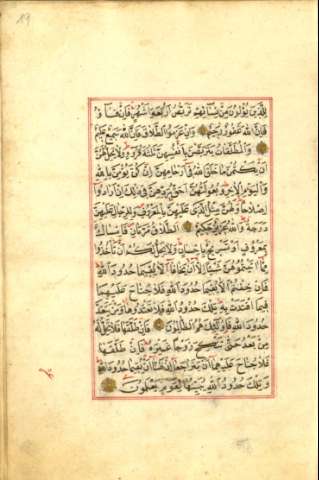 لِلَّذِينَ يُؤْلُونَ مِنْ نِسَائِهِمْ تَرَبُّصُ اَرْبَعَةِ اَشْهُرٍ فَاِنْ فَاؤُ
فَاِنَّ اللّٰهَ غَفُورٌ رَحِيمٌ وَاِنْ عَزَمُوا الطَّلَاقَ فَاِنَّ اللّٰهَ سَمِيعٌ عَلِيمٌ
وَالْمُطَلَّقَاتُ يَتَرَبَّصْنَ بِاَنْفُسِهِنَّ ثَلٰثَةَ قُرُوءٍ وَلَا يَحِلُّ لَهُنَّ
اَنْ يَكْتُمْنَ مَا خَلَقَ اللّٰهُ فِي اَرْحَامِهِنَّ اِنْ كُنَّ يُؤْمِنَّ بِاللّٰهِ
وَالْيَوْمِ الْاٰخِرِ وَبُعُولَتُهُنَّ اَحَقُّ بِرَدِّهِنَّ فِي ذٰلِكَ اِنْ اَرَادُوا
اِصْلَاحًا وَلَهُنَّ مِثْلُ الَّذِي عَلَيْهِنَّ بِالْمَعْرُوفِ وَلِلرِّجَالِ عَلَيْهِنَّ
دَرَجَةٌ وَاللّٰهُ عَزِيزٌ حَكِيمٌ اَلطَّلَاقُ مَرَّتَانِ فَاِمْسَاكٌ
بِمَعْرُوفٍ اَوْ تَسْرِيحٌ بِاِحْسَانٍ وَلَا يَحِلُّ لَكُمْ اَنْ تَأْخُذُوا
مِمَّا اٰتَيْتُمُوهُنَّ شَيْئًا اِلَّا اَنْ يَخَافَا اَلَّا يُقِيمَا حُدُودَ اللّٰهِ
فَاِنْ خِفْتُمْ اَلَّا يُقِيمَا حُدُودَ اللّٰهِ فَلَا جُنَاحَ عَلَيْهِمَا
فِيمَا افْتَدَتْ بِهِ تِلْكَ حُدُودُ اللّٰهِ فَلَا تَعْتَدُوهَا وَمَنْ يَتَعَدَّ
حُدُودَ اللّٰهِ فَاُولٰئِكَ هُمُ الظَّالِمُونَ فَاِنْ طَلَّقَهَا فَلَا تَحِلُّ لَهُ
مِنْ بَعْدُ حَتّٰى تَنْكِحَ زَوْجًا غَيْرَهُ فَاِنْ طَلَّقَهَا
فَلَا جُنَاحَ عَلَيْهِمَا اَنْ يَتَرَاجَعَا اِنْ ظَنَّا اَنْ يُقِيمَا حُدُودَ اللّٰهِ
وَتِلْكَ حُدُودُ اللّٰهِ يُبَيِّنُهَا لِقَوْمٍ يَعْلَمُونَ